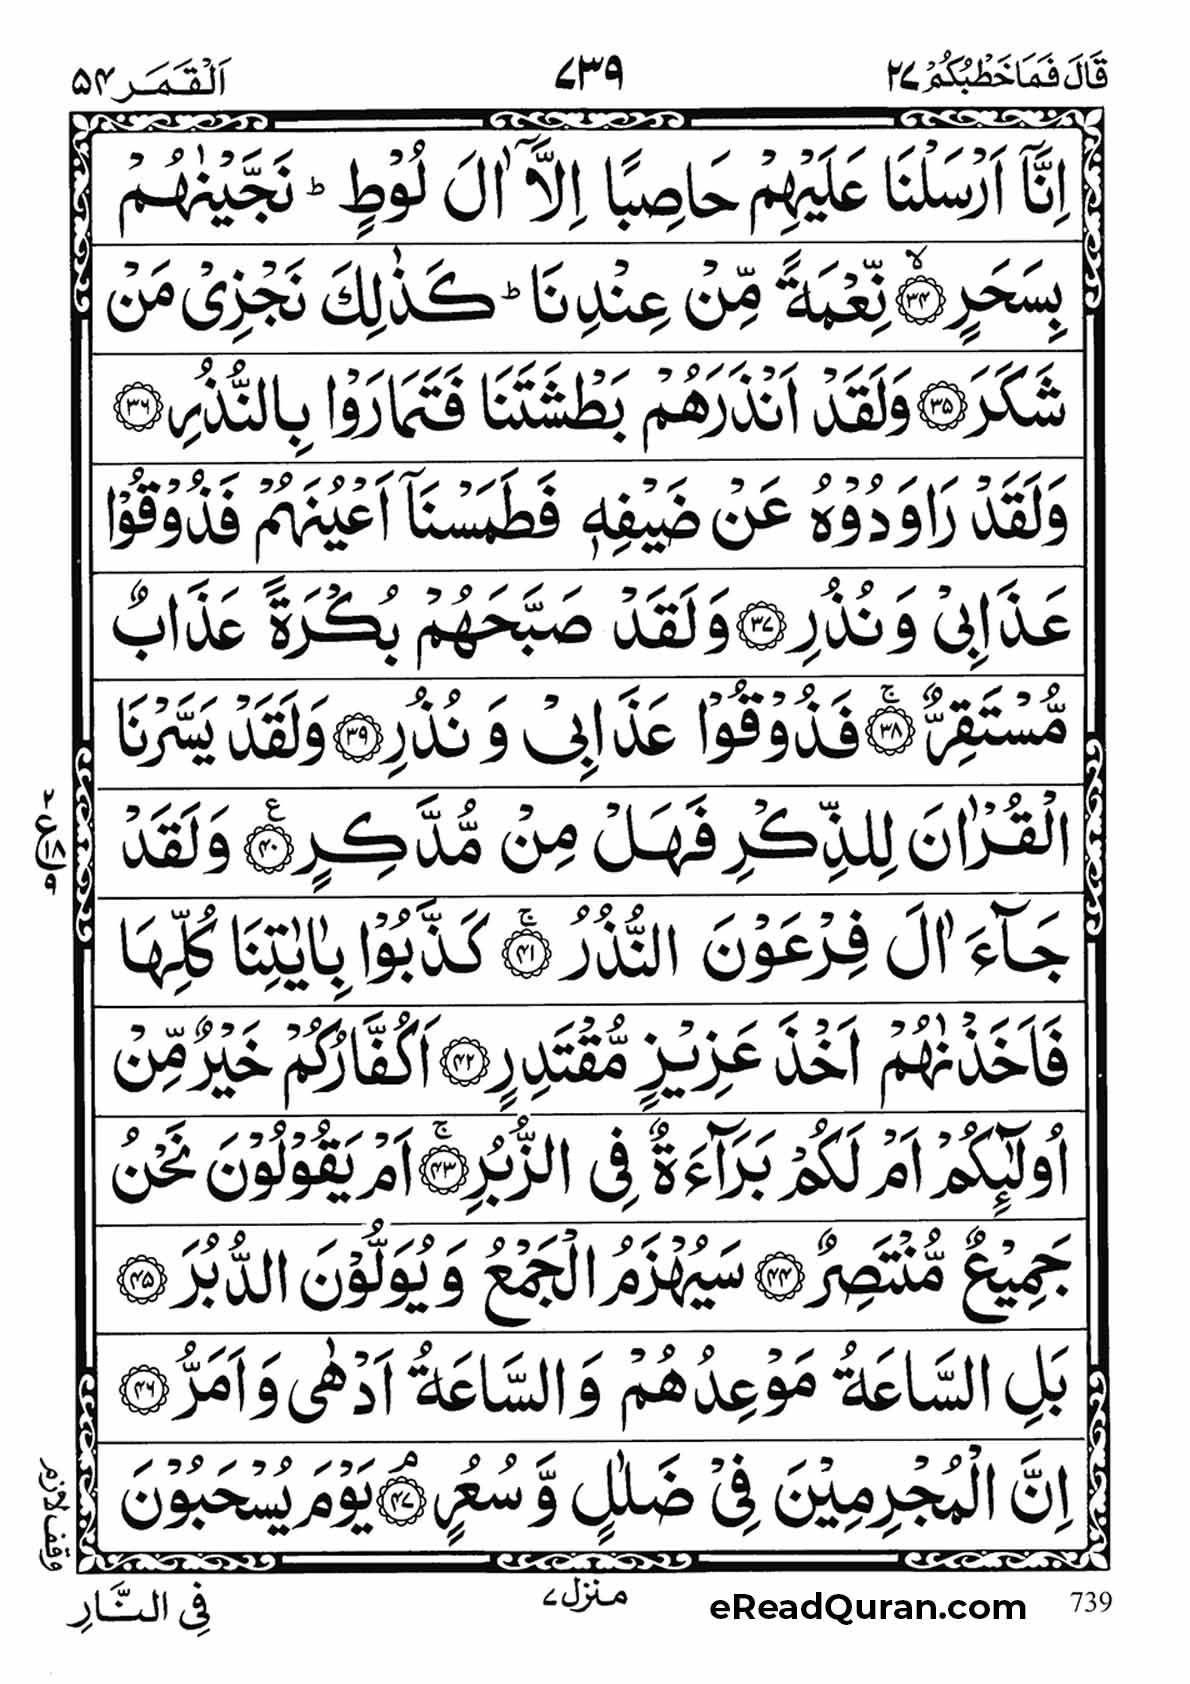 قَالَ فَمَا خَطْبُكُمْ ۲۷ ۷۳۹ اَلْقَمَر ۵۴
اِنَّاۤ اَرْسَلْنَا عَلَیْهِمْ حَاصِبًا اِلَّاۤ اٰلَ لُوْطٍ ؕ نَجَّیْنٰهُمْ
بِسَحَرٍ ۙ﴿۳۴﴾ نِّعْمَةً مِّنْ عِنْدِنَا ؕ كَذٰلِكَ نَجْزِیْ مَنْ
شَكَرَ ﴿۳۵﴾ وَلَقَدْ اَنْذَرَهُمْ بَطْشَتَنَا فَتَمَارَوْا بِالنُّذُرِ ﴿۳۶﴾
وَلَقَدْ رَاوَدُوْهُ عَنْ ضَیْفِهٖ فَطَمَسْنَاۤ اَعْیُنَهُمْ فَذُوْقُوْا
عَذَابِیْ وَنُذُرِ ﴿۳۷﴾ وَلَقَدْ صَبَّحَهُمْ بُكْرَةً عَذَابٌ
مُّسْتَقِرٌّ ۚ﴿۳۸﴾ فَذُوْقُوْا عَذَابِیْ وَنُذُرِ ﴿۳۹﴾ وَلَقَدْ یَسَّرْنَا
الْقُرْاٰنَ لِلذِّكْرِ فَهَلْ مِنْ مُّدَّكِرٍ ﴿۴۰﴾ ع وَلَقَدْ
۲ ع ۱۸ ۹
جَآءَ اٰلَ فِرْعَوْنَ النُّذُرُ ۚ﴿۴۱﴾ كَذَّبُوْا بِاٰیٰتِنَا كُلِّهَا
فَاَخَذْنٰهُمْ اَخْذَ عَزِیْزٍ مُّقْتَدِرٍ ﴿۴۲﴾ اَكُفَّارُكُمْ خَیْرٌ مِّنْ
اُولٰٓئِكُمْ اَمْ لَكُمْ بَرَآءَةٌ فِی الزُّبُرِ ۚ﴿۴۳﴾ اَمْ یَقُوْلُوْنَ نَحْنُ
جَمِیْعٌ مُّنْتَصِرٌ ﴿۴۴﴾ سَیُهْزَمُ الْجَمْعُ وَیُوَلُّوْنَ الدُّبُرَ ﴿۴۵﴾
بَلِ السَّاعَةُ مَوْعِدُهُمْ وَالسَّاعَةُ اَدْهٰی وَاَمَرُّ ﴿۴۶﴾
اِنَّ الْمُجْرِمِیْنَ فِیْ ضَلٰلٍ وَّسُعُرٍ ۘ﴿۴۷﴾ یَوْمَ یُسْحَبُوْنَ
وقف لازم
739 eReadQuran.com منزل ۷ فِی النَّارِ